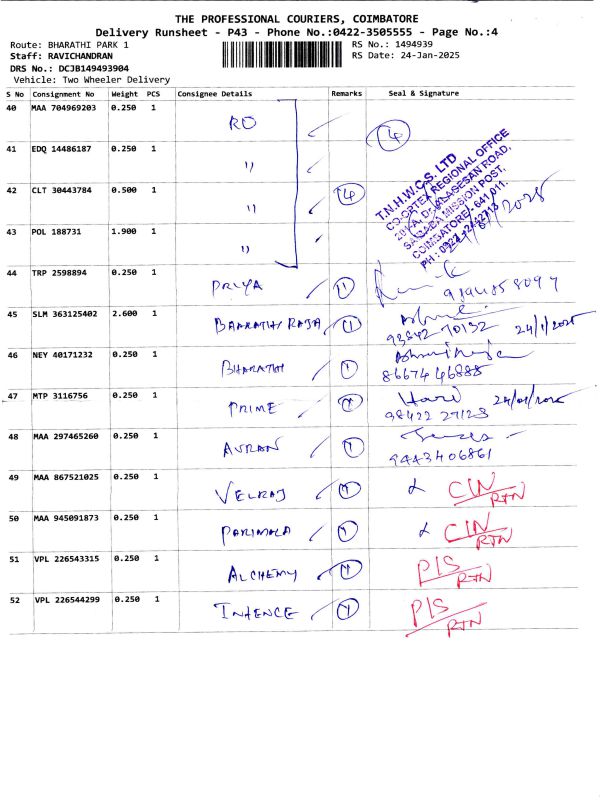 THE PROFESSIONAL COURIERS, COIMBATORE
Delivery Runsheet - P43 - Phone No.:0422-3505555 - Page No.:4
Route: BHARATHI PARK 1 RS No.: 1494939
Staff: RAVICHANDRAN RS Date: 24-Jan-2025
DRS No.: DCJB149493904
Vehicle: Two Wheeler Delivery
S No Consignment No Weight PCS Consignee Details Remarks Seal & Signature
40 MAA 704969203 0.250 1 RO 4
41 EDQ 14486187 0.250 1 "
42 CLT 30443784 0.500 1 " 4
43 POL 188731 1.900 1 "
T.N.H.W.C.S. LTD
CO-OPTEX REGIONAL OFFICE
SAIBABA MISSION POST,
COIMBATORE - 641 011.
44 TRP 2598894 0.250 1 PRIYA 1
45 SLM 363125402 2.600 1 BHARATHI RAJA 1
24/1/2025
46 NEY 40171232 0.250 1 BHARATHI 1
8667446888
47 MTP 3116756 0.250 1 PRIME 1 Hari 24/01/2025
98422 27123
48 MAA 297465260 0.250 1 AVRAN 1
9443406861
49 MAA 867521025 0.250 1 VELRAJ 1 CIN/RTN
50 MAA 945091873 0.250 1 PARIMALA 1 CIN/RTN
51 VPL 226543315 0.250 1 ALCHEMY 1 PIS/RTN
52 VPL 226544299 0.250 1 INTENCE 1 PIS/RTN